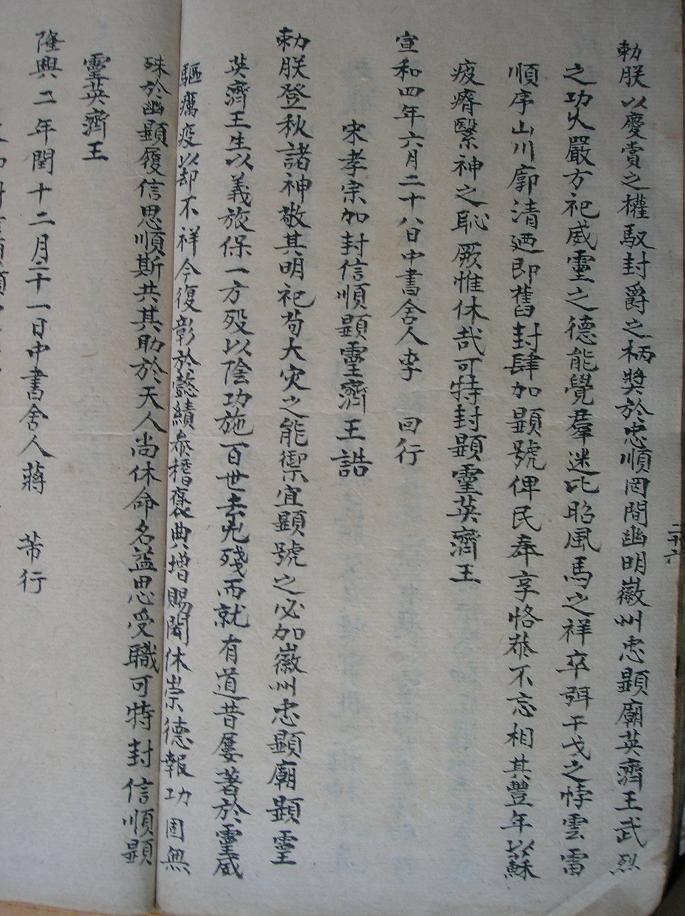 勅朕以慶賞之權馭封爵之柄奬於忠順罔間幽明徽州忠顯廟英濟王武烈
之功火嚴方祀威靈之德能覺羣迷比昭風馬之祥卒弭干戈之悖雲雷
順序山川廓清廼即舊封肆加顯號俾民奉享恪恭不忘相其豐年以蘇
疲瘠繄神之恥厥惟休哉可特封顯靈英濟王
宣和四年六月二十八日中書舍人李 回行
宋孝宗加封信順顯靈濟王誥
勅朕登秋諸神敬其明祀苟大灾之能禦宜顯號之必加徽州忠顯廟顯靈
英濟王生以義旅保一方殁以陰功施百世去兇殘而就有道昔屢著於靈威
驅癘疫以却不祥今復彰於懿績叅稽褒典增賜閎休崇德報功固無
殊於幽顯履信思順斯共其助於天人尚休命名益思受職可特封信順顯
靈英濟王
隆興二年閏十二月二十一日中書舍人蔣 芾行
二十六